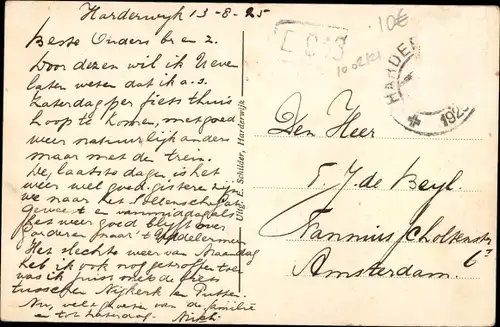 Harderwijk 13-8-25
Beste Ouders br en z.
Door dezen wil ik U even
laten weten dat ik a.s.
Zaterdag per fiets thuis
hoop te komen, met goed
weer natuurlijk anders
maar met de trein.
De laatste dagen is het
weer wel goed. gisteren zijn
we naar het
geweest en vanmiddag als
het weer goed blijft over
naar 't Uddelermeer
Het slechte weer van Maandag
heb ik ook nog getroffen toen
was ik juist met de fiets
tusschen Nijkerk en Putten.
Nu, vele groeten van de familie
en tot Zaterdag.
Uitg. E. Schilder, Harderwijk
10€
HARDE
192
Den Heer
T. J. de Beyl
Frannius Scholtenstr
6
Amsterdam.